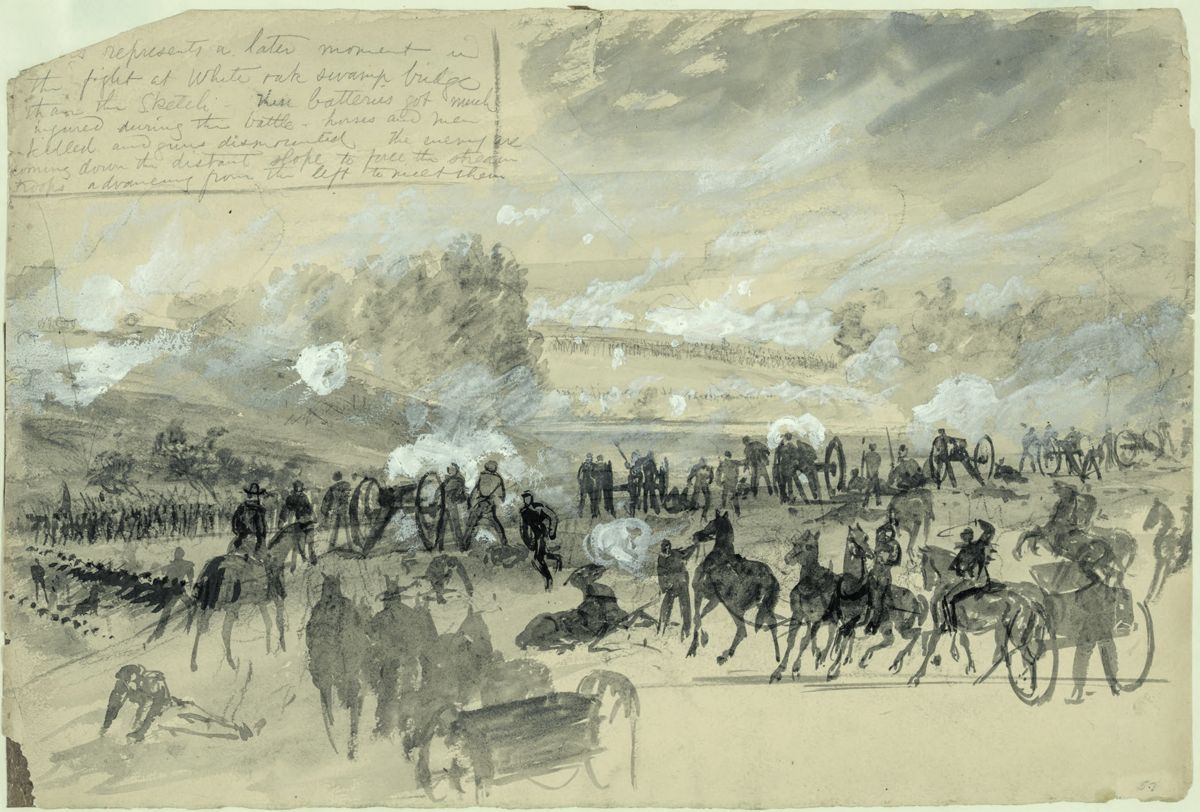 s represents a later moment in
the fight at White oak swamp bridge
than the Sketch - these batteries got much
injured during the battle - horses and men
killed and guns dismounted the enemy are
coming down the distant slope to force the stream
troops advancing from the left to meet them